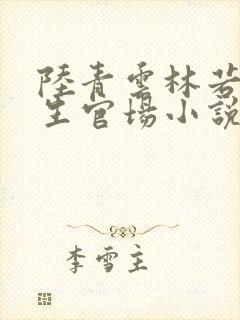 陸青雲林若
生官場小說
李雪主